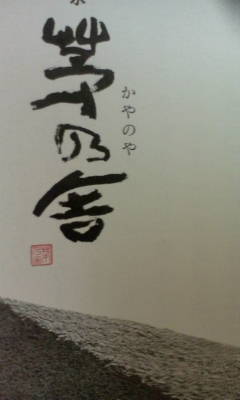 茅乃舎
かやのや